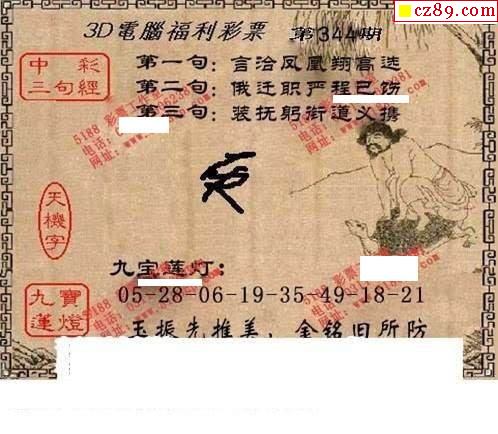 cz89.com
3D電腦福利彩票 第344期
中彩
三句經
第一句：言治凤凰翔高选
第二句：俄迁职严程已饬
第三句：装抚躬街道义携
天機字
九宝莲灯：
九寶
蓮燈
05-28-06-19-35-49-18-21
玉振先推美，金铭旧所防